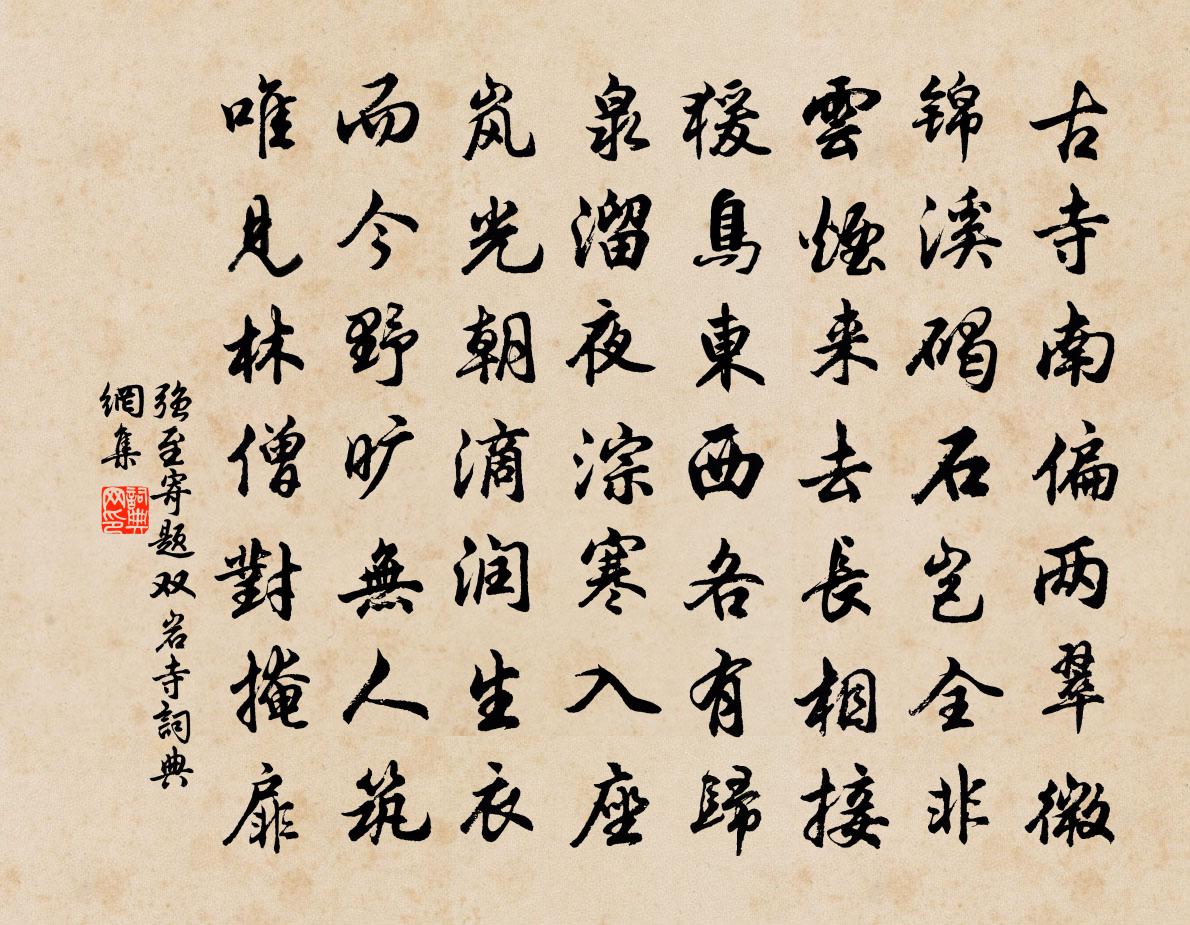 古寺南偏两翠微
锦溪碣石岂全非
雲煙来去長相接
猨鳥東西各有歸
泉溜夜淙寒入座
岚光朝滴润生衣
而今野旷無人筑
唯見林僧對掩扉
強至寄题双岩寺詞典
網集
詞典
网印